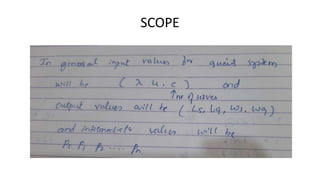 SCOPE
In general input values for queid system
will be ( λ u . c ) and
↑no of server
output values will be ( Ls, Lq, Ws. Wq )
and intermediate values will be
P0 P1 P2 .... Pn